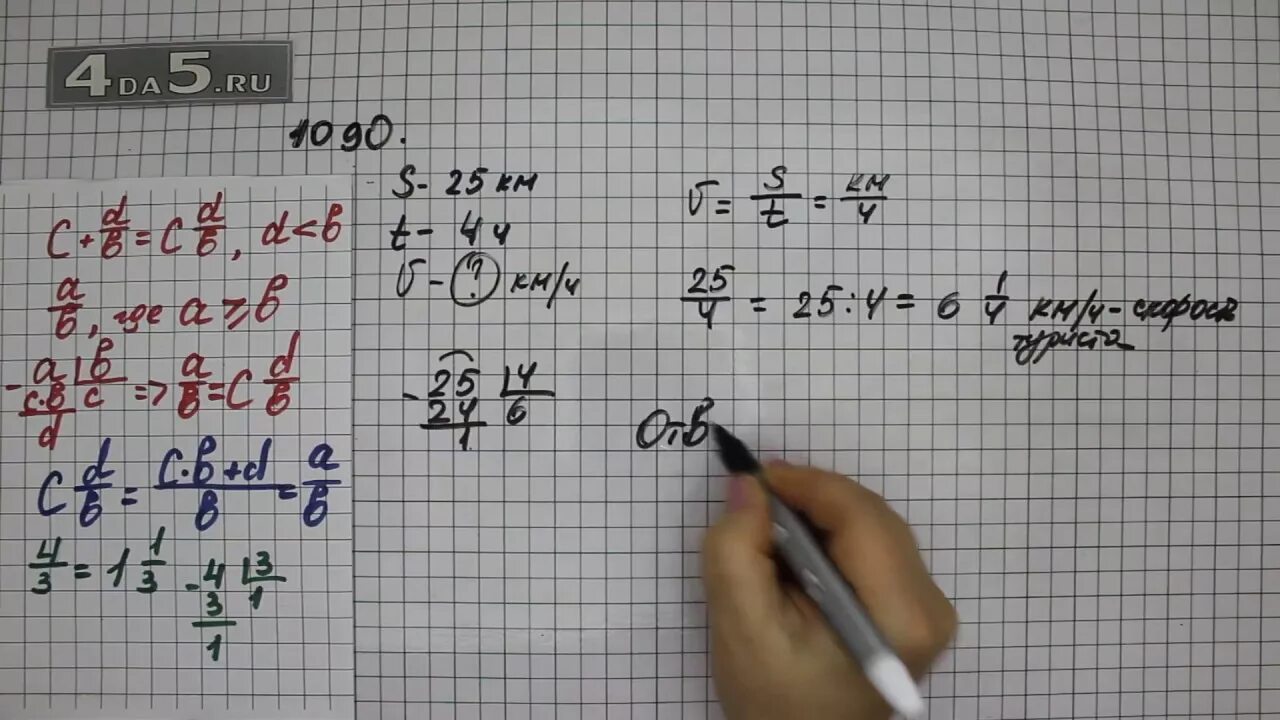 4DA5.RU
1090.
c + d/в = c d/в, d < в
a/в, где a ⩾ в
- a | в
c·в | c => a/в = c d/в
d
c d/в = c·в+d/в = a/в
4/3 = 1 1/3
- 4 | 3
3 | 1
1
S - 25 км
t - 4 ч
V - ? км/ч
- 25 | 4
24 | 6
1
V = S/t = км/ч
25/4 = 25 : 4 = 6 1/4 км/ч - скорость
туриста
Отв